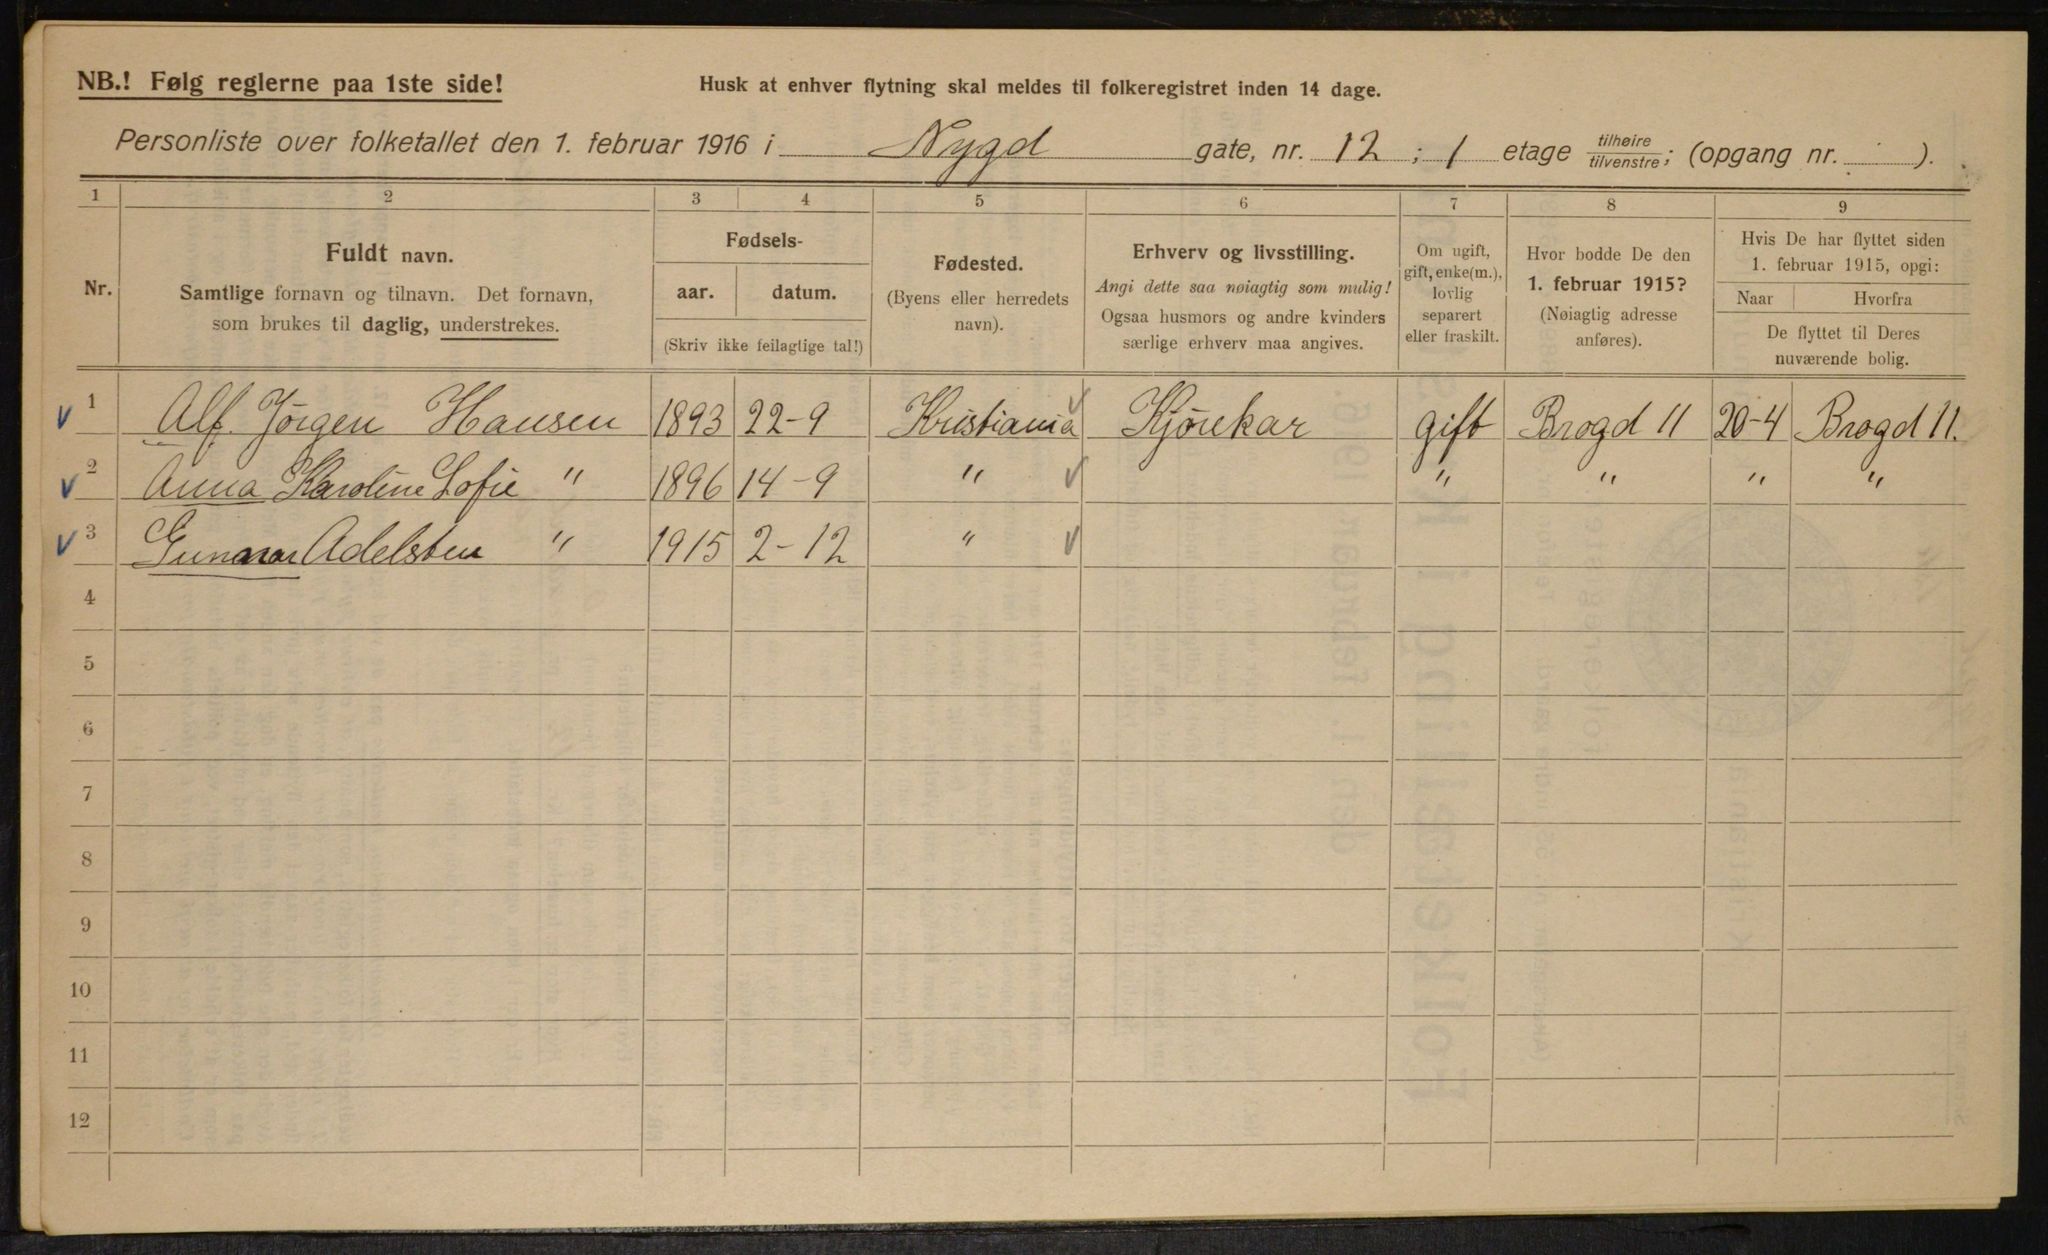 NB.! Følg reglerne paa 1ste side!
Husk at enhver flytning skal meldes til folkeregistret inden 14 dage.
Personliste over folketallet den 1. februar 1916 i Nygd gate, nr. 12 ; 1 etage tilhøire/tilvenstre; (opgang nr. ).
1 2 3 4 5 6 7 8 9
Nr.
Fuldt navn.
Samtlige fornavn og tilnavn. Det fornavn,
som brukes til daglig, understrekes.
Fødsels-
aar. datum.
(Skriv ikke feilagtige tal!)
Fødested.
(Byens eller herredets
navn).
Erhverv og livsstilling.
Angi dette saa nøiagtig som mulig!
Ogsaa husmors og andre kvinders
særlige erhverv maa angives.
Om ugift,
gift, enke(m.),
lovlig
separert
eller fraskilt.
Hvor bodde De den
1. februar 1915?
(Nøiagtig adresse
anføres).
Hvis De har flyttet siden
1. februar 1915, opgi:
Naar Hvorfra
De flyttet til Deres
nuværende bolig.
1 Alf. Jörgen Hansen 1893 22-9 Kristiania Kjörekar gift Brogd 11 20-4 Brogd 11.
2 Anna Karoline Sofie " 1896 14-9 " " " " "
3 Gunnar Adelsten " 1915 2-12 "
4
5
6
7
8
9
10
11
12